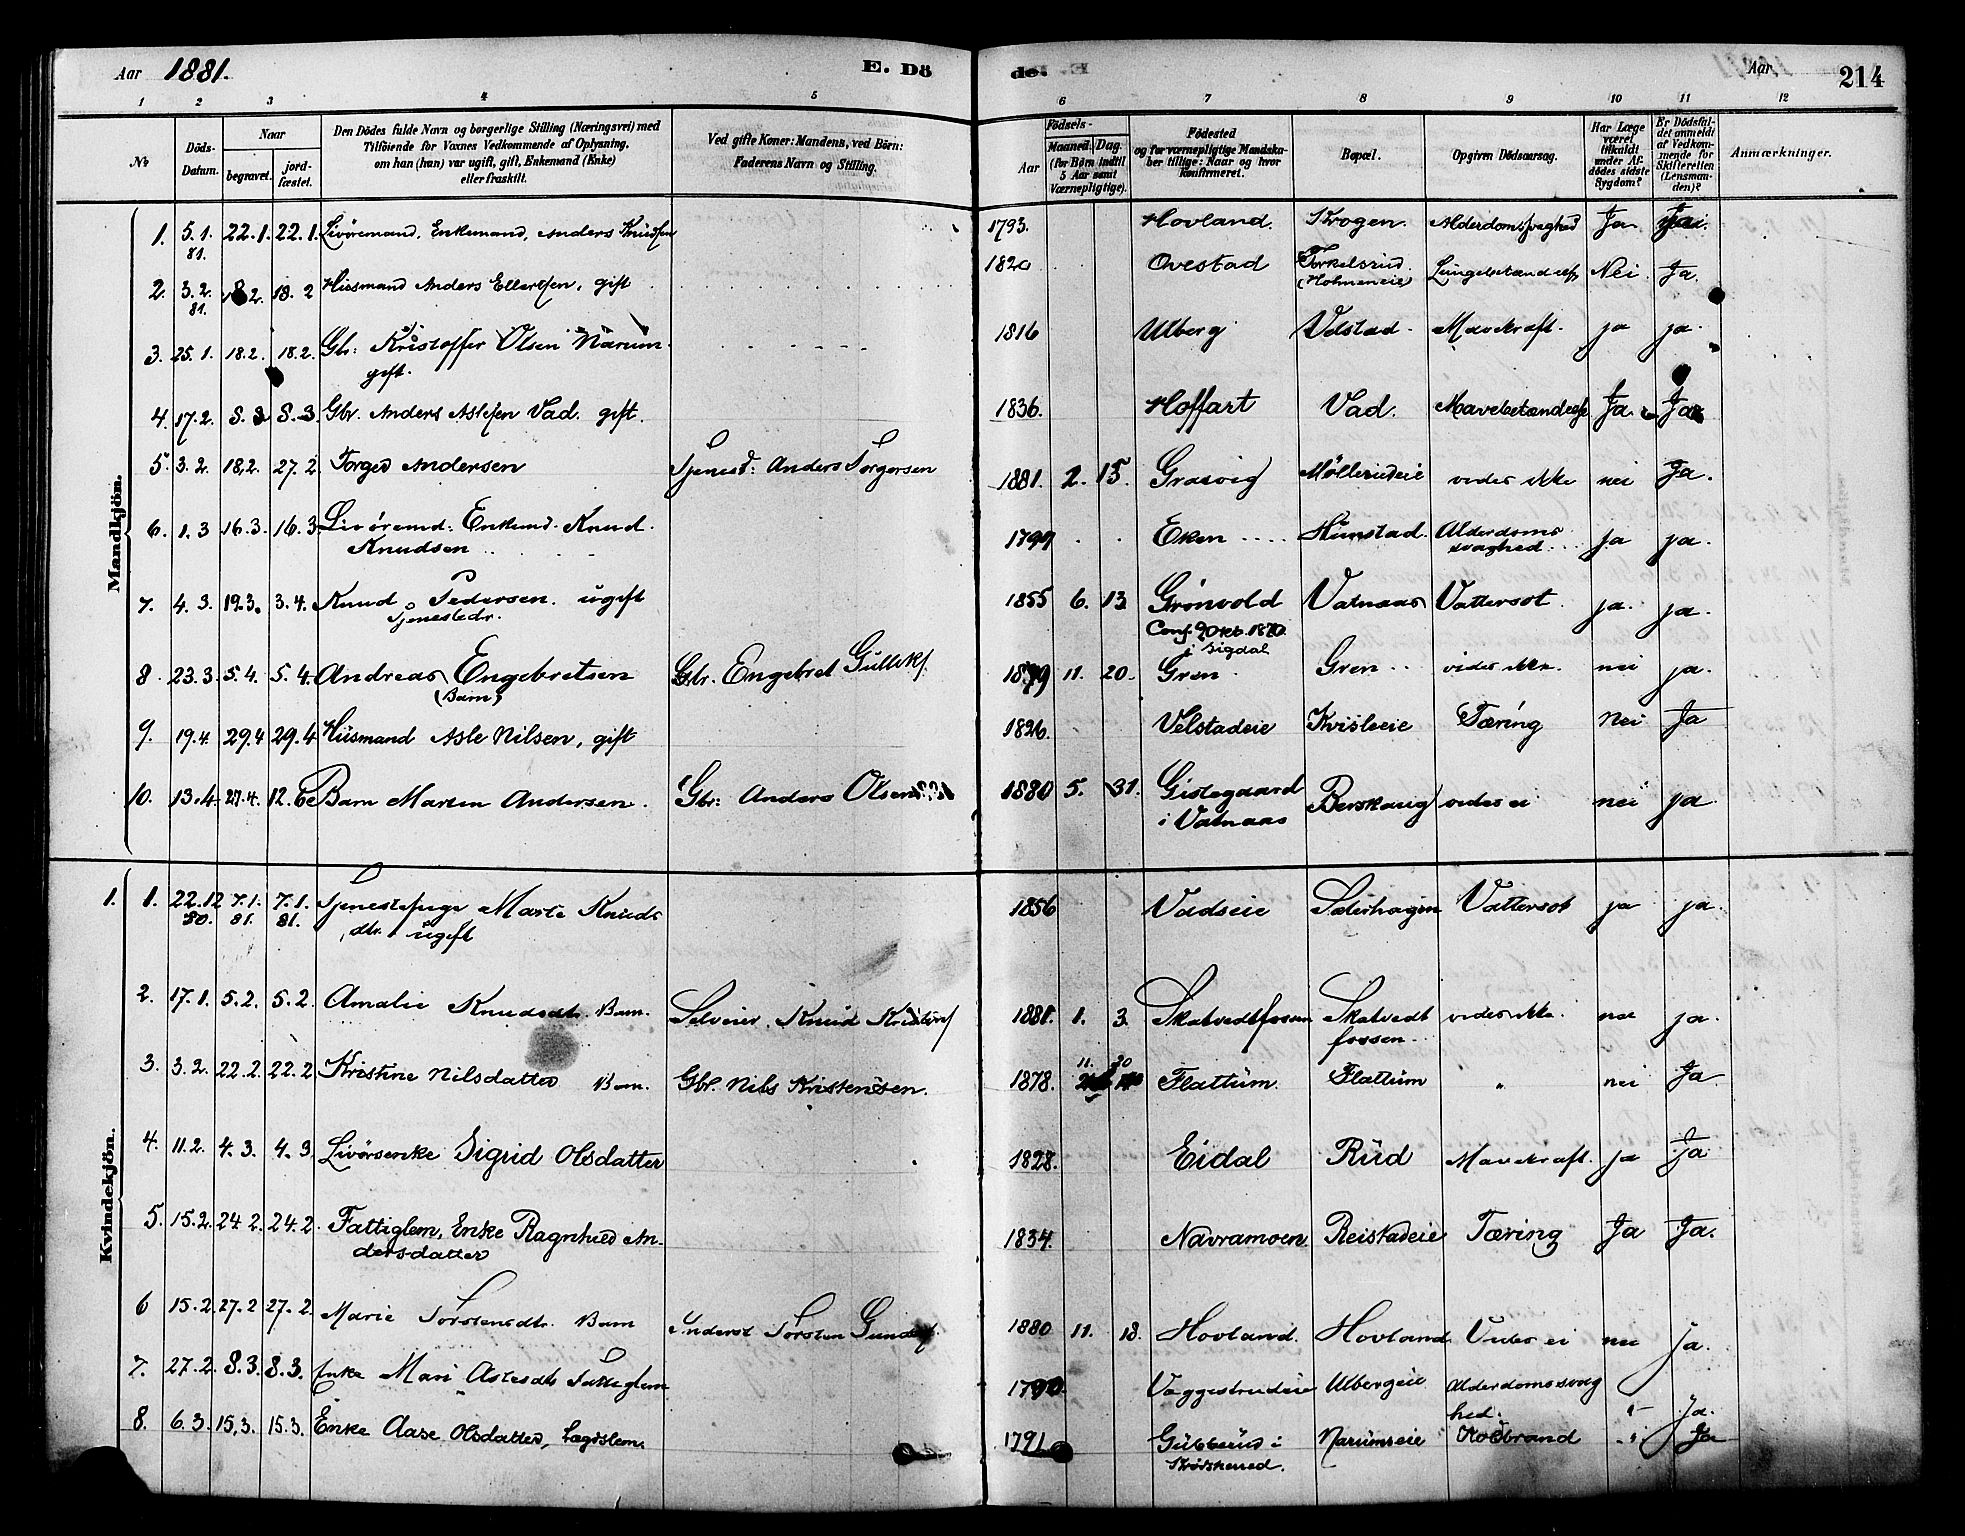 Aar 1881. E. Dö
1 2 3 4 5
No
Döds-Datum.
Naar
begravet. jord-fæstet.
Den Dödes fulde Navn og borgerlige Stilling (Næringsvei) med
Tilföiende for Voxnes Vedkommende af Oplysning,
om han (hun) var ugift, gift, Enkemand (Enke)
eller fraskilt.
Ved gifte Koner: Mandens, ved Börn:
Faderens Navn og Stilling.
Mandkjön.
1. 5.1. 81. 22.1. 22.1. Livöremand, Enkemand, Anders Knudsen
2. 3.2. 81. 18.2. 18.2 Husmand Anders Ellertsen, gift
3. 25.1. 18.2. 18.2. Gbr: Kristoffer Olsen Narum
gift.
4. 17.2. 8.3 8.3 Gbr. Anders Aslesen Vad. gift.
5. 3.2. 18.2. 27.2 Torger Andersen Tjenestd: Anders Torgersen
6. 1.3 16.3. 16.3. Livöremd: Enkemd. Knud
Knudsen
7. 4.3. 19.3. 3.4. Knud Pedersen. ugift
Tjenestedr.
8. 23.3. 5.4. 5.4. Andreas Engebretsen Gbr. Engebret Gulliks.
(Barn)
9. 19.4. 29.4 29.4 Husmand Asle Nilsen, gift
10. 13.4. 27.4. 12.6 Barn Martin Andersen. Gbr: Anders Olsen
Kvindekjön.
1. 1. 22.12 80. 7.1. 81. 7.1. 81. Tjenestepige Marte Knuds
dtr. ugift
2. 17.1. 5.2. 5.2. Amalie Knudsdt. Barn. Selveier. Knud
3. 3.2. 22.2 22.2 Kristine Nilsdatter Barn. Gbr. Nils Kristensen.
4. 11.2. 4.3. 4.3. Livörsenke Sigrid Olsdatter
5. 15.2. 24.2. 24.2. Fattiglem, Enke Ragnhild An-
dersdatter
6 15.2. 27.2 27.2. Marie Torstensdtr. Barn Inderst Torsten
7. 27.2. 8.3. 8.3. Enke Mari Aslesdtr Fattiglem
8. 6.3. 15.3. 15.3. Enke Aase Olsdatter, Lægdslem.
de. Aar 214
6 7 8 9 10 11 12
Födsels-
Aar Maaned. Dag.
(for Börn indtil
5 Aar samt
Værnepligtige).
Födested
og for værnepligtige Mandska-
ber tillige: Naar og hvor
konfirmeret.
Bopæl.
Opgiven Dödsaarsag.
Har Læge
været
tilkaldt
under Af-
dödes sidste
Sygdom?
Er Dödsfal-
det anmeldt
af Vedkom-
mende for
Skifteretten
(Lensman-
den)?
Anmærkninger.
1793. Hovland. Krogen. Alderdomssvaghed Ja Ja.
1820 Ovestad Torkelsrud (Holmeneie) Lungebetændelse Nei Ja.
1816 Ulberg Velstad. Mavekræft. ja ja.
1836. Hoffart Vad. Mavebetændelse Ja. Ja
1881. 2. 15. Grasvig Möllerudeie vides ikke nei Ja.
1799 Eken Hunstad. Alderdoms
svaghed. ja ja.
1855 6. 13. Grönvold Vatnaas Vattersot. ja. ja.
Conf. 9 Okt. 1870.
i Sigdal
1879 11. 20. Gren Gren vides ikke. nei ja.
1826. Velstadeie Kvisleeie Tæring Nei Ja
1880 5. 31. Gistegaard
i Vatnaas Berskaug vides ei nei ja
1856 Vadseie Sæterhagen Vattersot ja ja.
1881. 1. 3. Skatvedtfossen Skatvedt
fossen vides ikke. nei ja.
1878. 11. 30 Flattum. Flattum " nei Ja
1828. Eidal Rud Mavekræft. ja Ja
1834. Navramoen. Reistadeie Tæring Ja Ja.
1880 11. 18. Hovland. Hovland Vides ei nei ja.
1790. Ulbergeie Alderdomssvag
hed. " Ja.
1791 Gubberud i
Krödsherred. Narumseie Koldbrand " Ja